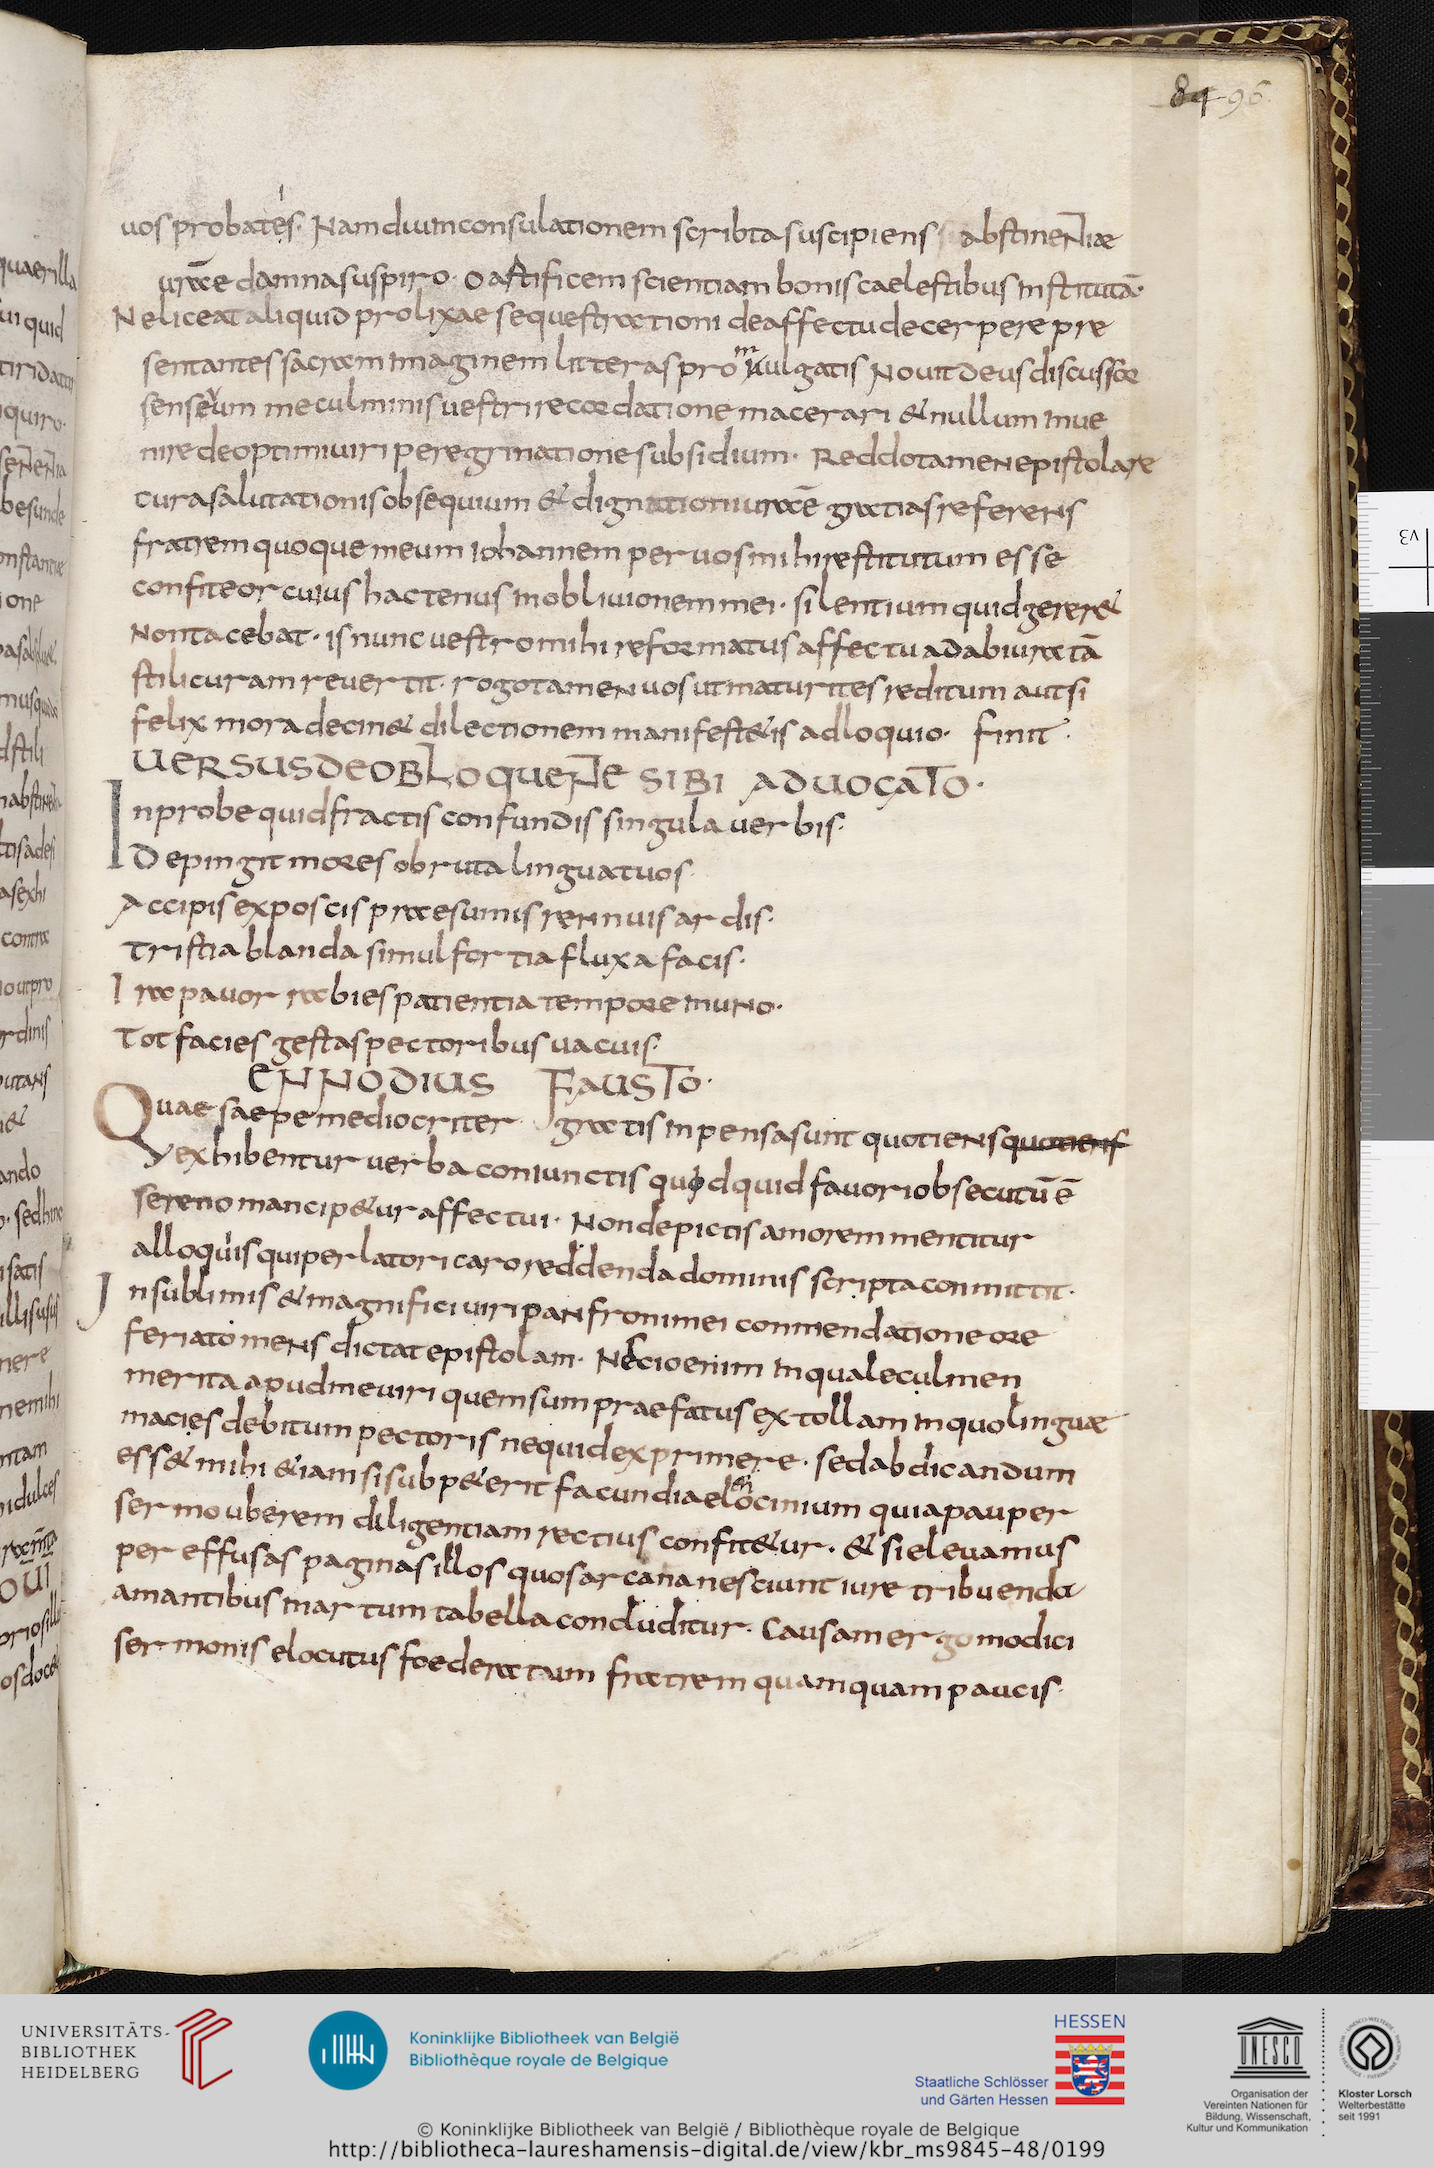 84 96
uos probates. Nam dium consulationem scribta suscipiens abstinentiae
urāe damna suspiro. o astificem scientiam bonis caelestibus institutā.
Ne liceat aliquid prolixae sequestrationi de affectu decerpere pre
sentantes sacram imaginem litteras pro uulgatis Nouit deus discussor
senseum me culminis uestri recordatione macerari & nullum inue
nire de optimi uiri peregrinatione subsidium. Reddo tamen epistolare
cura salutationis obsequium & dignationi uraē gratias referens
fratrem quoque meum iohannem per uos mihi restitutum esse
confiteor cuius hactenus in obliuionem mei. silentium quid gerer&
Non tacebat. is nunc uestro mihi reformatus affectu ad abiuratā
stili curam reuertit. rogo tamen uos ut maturites reditum aut si
felix mora decin& dilectionem manifest&is adloquio. finit.
UERSUS DE OBLOQUENTE SIBI ADVOCATO.
Inprobe quid fractis confundis singula uerbis.
Depingit mores obruta lingua tuos
Accipis exposcis praesumis rennuis ardis.
Tristia blanda simul fortia fluxa facis.
Ira pauor rabies patientia tempore in uno.
Tot facies gestas pectoribus uacuis.
ENNODIUS FAUSTO.
Quae saepe mediocriter gratis inpensa sunt quotiens quotiens
exhibentur uerba coniunctis quod quid fauori obsecutū ē
sereno mancip&ur affectui. Non depictis amorem mentitur
alloquiis qui perlatori caro reddenda dominis scripta conmittit.
In sublimis & magnifici uiri panfroni mei conmendatione ore
feriato mens dictat epistolam. Nescio enim in quale culmen
merita apud me uiri quem sum praefatus extollam in quo linguae
macies debitum pectoris nequid exprimere. sed abdicandum
ess& mihi &iam si subp&erit facundia elocinium quia pauper
sermo uberem diligentiam rectius confit&ur. & si eleuamus
per effusas paginas illos quos arcana nesciunt iure tribuenda
amantibus in artum tabella concluditur. Causam ergo modici
sermonis elocutus foederatum fratrem quamquam paucis
UNIVERSITÄTS-
BIBLIOTHEK
HEIDELBERG
Koninklijke Bibliotheek van België
Bibliothèque royale de Belgique
HESSEN
Staatliche Schlösser
und Gärten Hessen
UNESCO
Organisation der
Vereinten Nationen für
Bildung, Wissenschaft,
Kultur und Kommunikation
Kloster Lorsch
Welterbestätte
seit 1991
© Koninklijke Bibliotheek van België / Bibliothèque royale de Belgique
http://bibliotheca-laureshamensis-digital.de/view/kbr_ms9845-48/0199